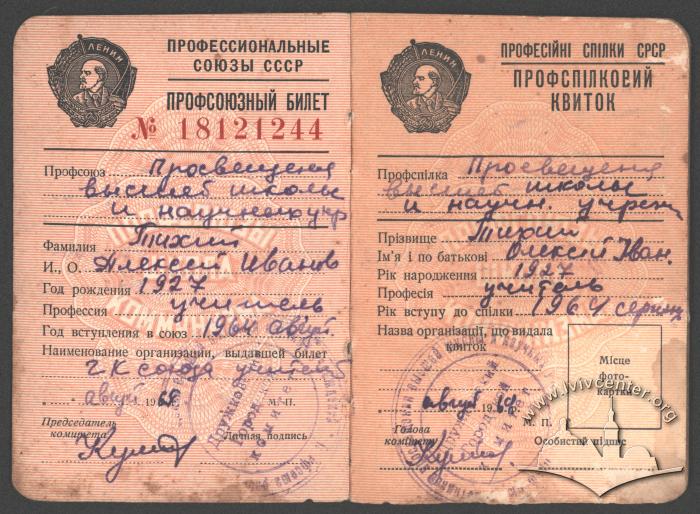 ЛЕНИН
ПРОФЕССИОНАЛЬНЫЕ
СОЮЗЫ СССР
ПРОФСОЮЗНЫЙ БИЛЕТ
№ 18121244
Профсоюз Просвещения
высшей школы
и научно учр
Фамилия Тихий
И., О. Алексей Иванов
Год рождения 1927
Профессия учитель
Год вступления в союз 1964 август
Наименование организации, выдавшей билет
ГК союза
август 196 М. П.
Председатель
комитета
Личная подпись
ЛЕНИН
ПРОФЕСІЙНІ СПІЛКИ СРСР
ПРОФСПІЛКОВИЙ
КВИТОК
Профспілка Просвещения
высшей школы
и научн. учреж
Прізвище Тихий
Ім'я і по батькові Олексій Іван.
Рік народження 1927
Професія учитель
Рік вступу до спілки 1964 серпн
Назва організації, що видала
квиток
Місце
фото-
картки
август 1964
М. П.
Голова
комітету
Особистий підпис
www.lvivcenter.org